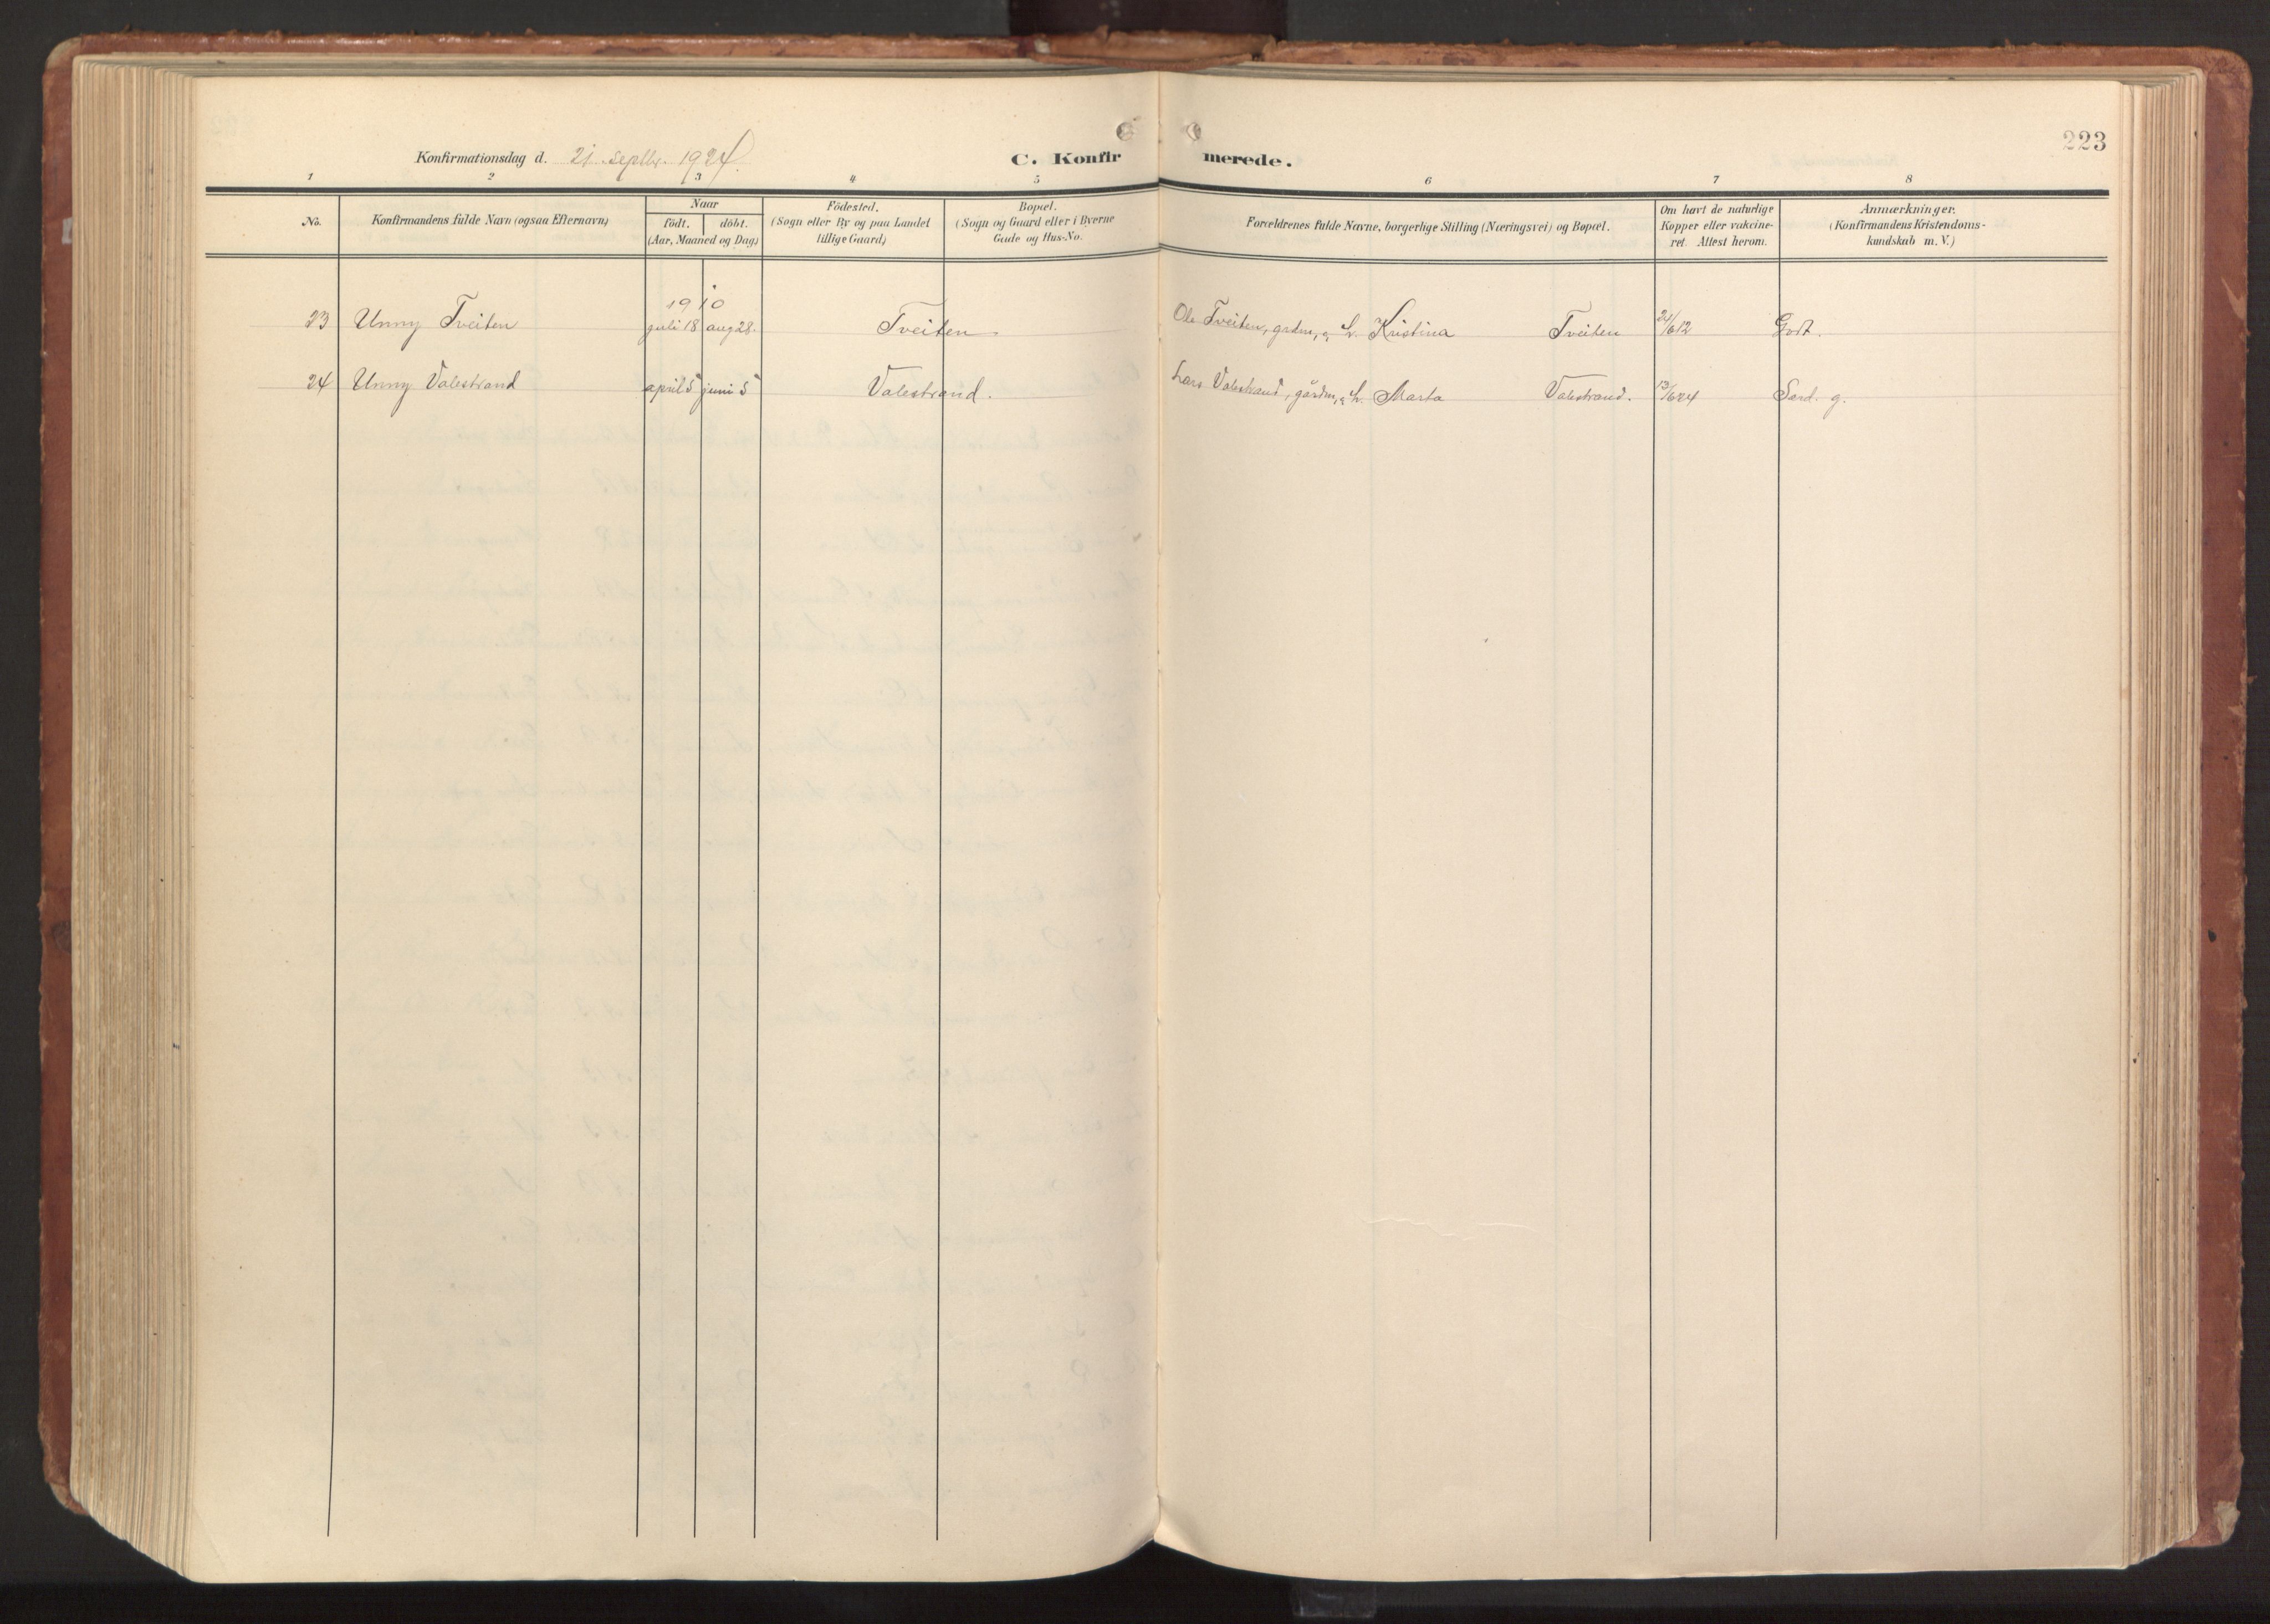 223
Konfirmationsdag d. 21. septbr. 1924.
C. Konfirmerede.
1 2 3 4 5 6 7 8
No.
Konfirmandens fulde Navn (ogsaa Efternavn)
Naar
födt. döbt.
(Aar, Maaned og Dag)
Födested.
(Sogn eller By og paa Landet
tillige Gaard)
Bopæl.
(Sogn og Gaard eller i Byerne
Gade og Hus-No.
Forældrenes fulde Navne, borgerlige Stilling (Næringsvei) og Bopæl.
Om havt de naturlige
Kopper eller vakcine-
ret. Attest herom.
Anmærkninger.
(Konfirmandens Kristendoms-
kundskab m. V.)
1910
23 Unny Tveiten juli 18 aug 28. Tveiten. Ole Tveiten, grdm, Kristina Tveiten 24/6 12 Godt.
24 Unny Valestrand april 5 juni 5 Valestrand. Lars Valestrand, gårdm, Marta Valestrand. 13/6 24 Särd. g.